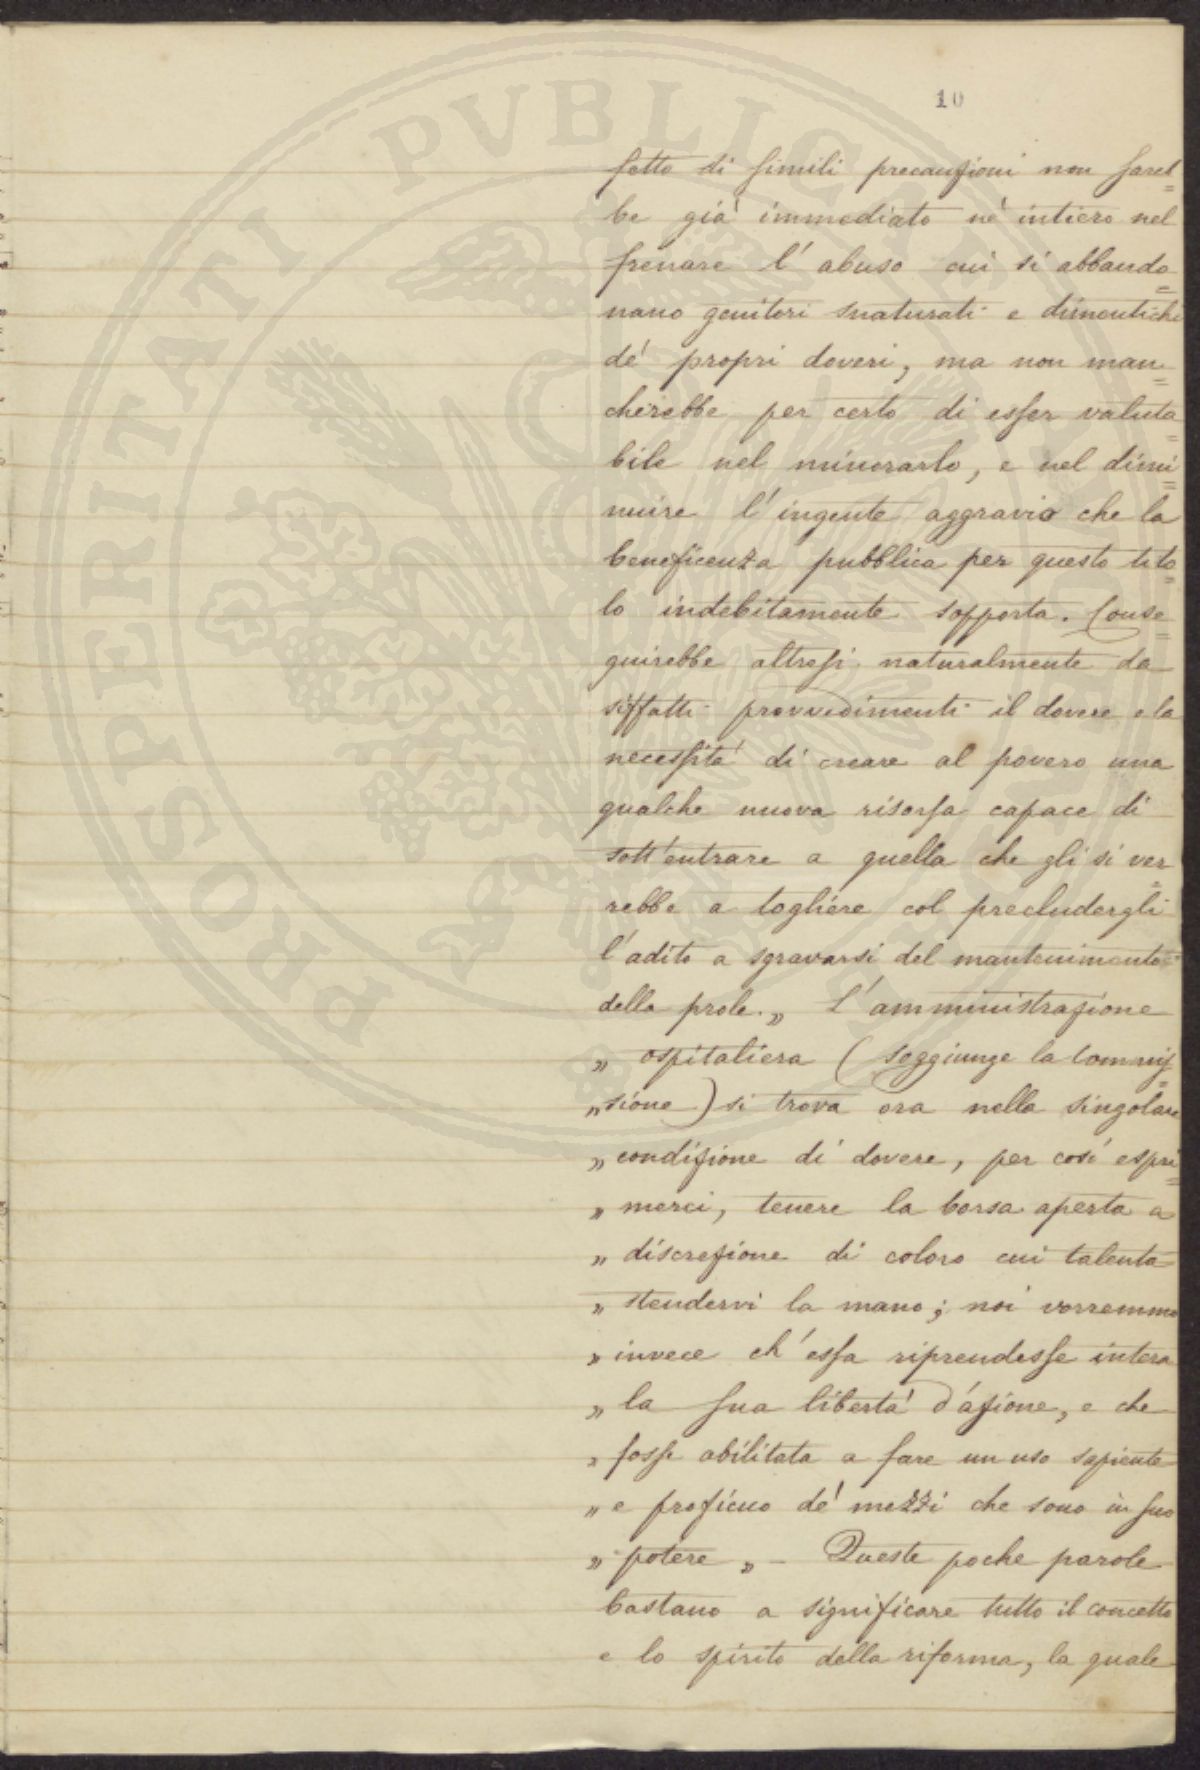 10
fetto di simili precauzioni non sareb=
be giá immediato né intiero nel
frenare l'abuso cui si abbando=
nano genitori snaturati e dimentichi
de' propri doveri, ma non man=
cherebbe per certo di esser valuta=
bile nel minorarlo, e nel dimi=
nuire l'ingente aggravio che la
beneficenza pubblica per questo tito=
lo indebitamente sopporta. Conse=
guirebbe altresi naturalmente da
siffatti provvedimenti il dovere e la
necessitá di creare al povero una
qualche nuova risorsa capace di
sott'entrare a quella che gli si ver=
rebbe a togliere col precludergli
l'adito a sgravarsi del mantenimento
della prole. „ L'amministrazione
„ ospitaliera (soggiunge la Commis=
„ sione) si trova ora nella singolare
„ condizione di dovere, per cosí espri=
„ merci, tenere la borsa aperta a
„ discrezione di coloro cui talenta
„ stendervi la mano; noi vorremmo
„ invece ch'essa riprendesse intera
„ la sua libertá d'azione, e che
„ fosse abilitata a fare un uso sapiente
„ e proficuo de' mezzi che sono in suo
„ potere „ - Queste poche parole
bastano a significare tutto il concetto
e lo spirito della riforma, la quale
PROSPERITATI PVBLICAE